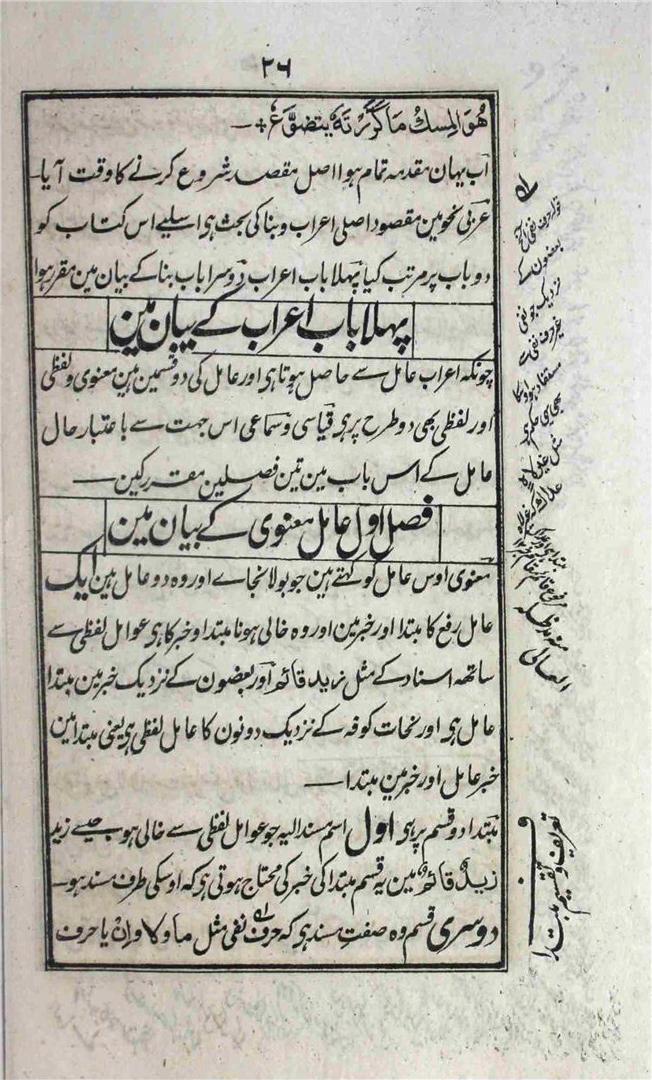 ۲۶
هُوَ المِسكُ مَا كَرَّرْتَهٗ يتضوَّعُ +—
اب یہان مقدمہ تمام ہوا اصل مقصد شروع کرنے کا وقت آیا۔
عربی نحو مین مقصود اصلی اعراب و بنا کی بحث ہی اسلیے اس کتاب کو
دو باب پر مرتب کیا پہلا باب اعراب دوسرا باب بنا کے بیان مین مقرر ہوا
پہلا باب اعراب کے بیان مین
چونکہ اعراب عامل سے حاصل ہوتا ہی اور عامل کی دو قسمین ہین معنوی و لفظی
اور لفظی بھی دو طرح پر ہی قیاسی و سماعی اس جہت سے باعتبار حال
عامل کے اس باب مین تین فصلین مقرر کین—
فصل اول عامل معنوی کے بیان مین
معنوی اوس عامل کو کہتے ہین جو بولا نجاے اور وہ دو عامل ہین ایک
عامل رفع کا مبتدا اور خبر مین اور وہ خالی ہونا مبتدا و خبر کا ہی عوامل لفظی سے
ساتھہ اسناد کے مثل زید قائم اور بعضون کے نزدیک خبر مین مبتدا
عامل ہی اور نحات کوفہ کے نزدیک دونون کا عامل لفظی ہی یعنی مبتدا مین
خبر عامل اور خبر مین مبتدا—
مبتدا دو قسم پر ہی اول اسم مسند الیہ جو عوامل لفظی سے خالی ہو جیسے زید
زیدٌ قائمٌ مین یہ قسم مبتدا کی خبر کی محتاج ہوتی ہی کہ اوسکی طرف مسند ہو۔
دوسری قسم وہ صفت مسند ہو کہ حرف نفی مثل ما و لا و اِنْ یا حرف
قولہ حرف نفی الخ
بعضون کے
نزدیک جو نفی
غیر حرف نفی سے
مستفاد ہو اوسکا
بھی یہی حکم ہی
تعریف و تقسیم مبتدا